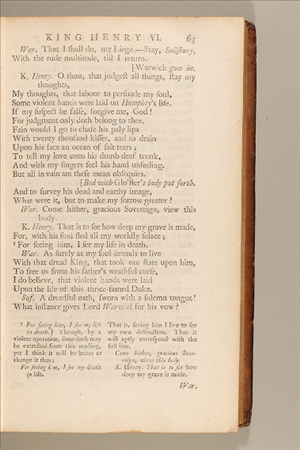 KING HENRY VI. 63
War. That I shall do, my Liege.—Stay, Salisbury,
With the rude multitude, till I return.
[Warwick goes in.
K. Henry. O thou, that judgest all things, stay my
thoughts,
My thoughts, that labour to persuade my soul,
Some violent hands were laid on Humphrey's life.
If my suspect be false, forgive me, God!
For judgment only doth belong to thee.
Fain would I go to chafe his paly lips
With twenty thousand kisses, and to drain
Upon his face an ocean of salt tears;
To tell my love unto his dumb deaf trunk,
And with my fingers feel his hand unfeeling.
But all in vain are these mean obsequies.
[Bed with Glo'ster's body put forth.
And to survey his dead and earthy image,
What were it, but to make my sorrow greater?
War. Come hither, gracious Sovereign, view this
body.
K. Henry. That is to see how deep my grave is made,
For, with his soul fled all my worldly solace;
⁷ For seeing him, I see my life in death.
War. As surely as my soul intends to live
With that dread King, that took our state upon him,
To free us from his father's wrathful curse,
I do believe, that violent hands were laid
Upon the life of this thrice-famed Duke.
Suf. A dreadful oath, sworn with a solemn tongue!
What instance gives Lord Warwick for his vow?
⁷ For seeing him, I see my life
in death.] Though, by a
violent operation, some sense may
be extracted from this reading,
yet I think it will be better to
change it thus;
For seeing him, I see my death
in life.
That is, seeing him I live to see
my own destruction. Thus it
will aptly correspond with the
first line.
Come hither, gracious Sove-
reign, view this body.
K. Henry. That is to see how
deep my grave is made.
War.